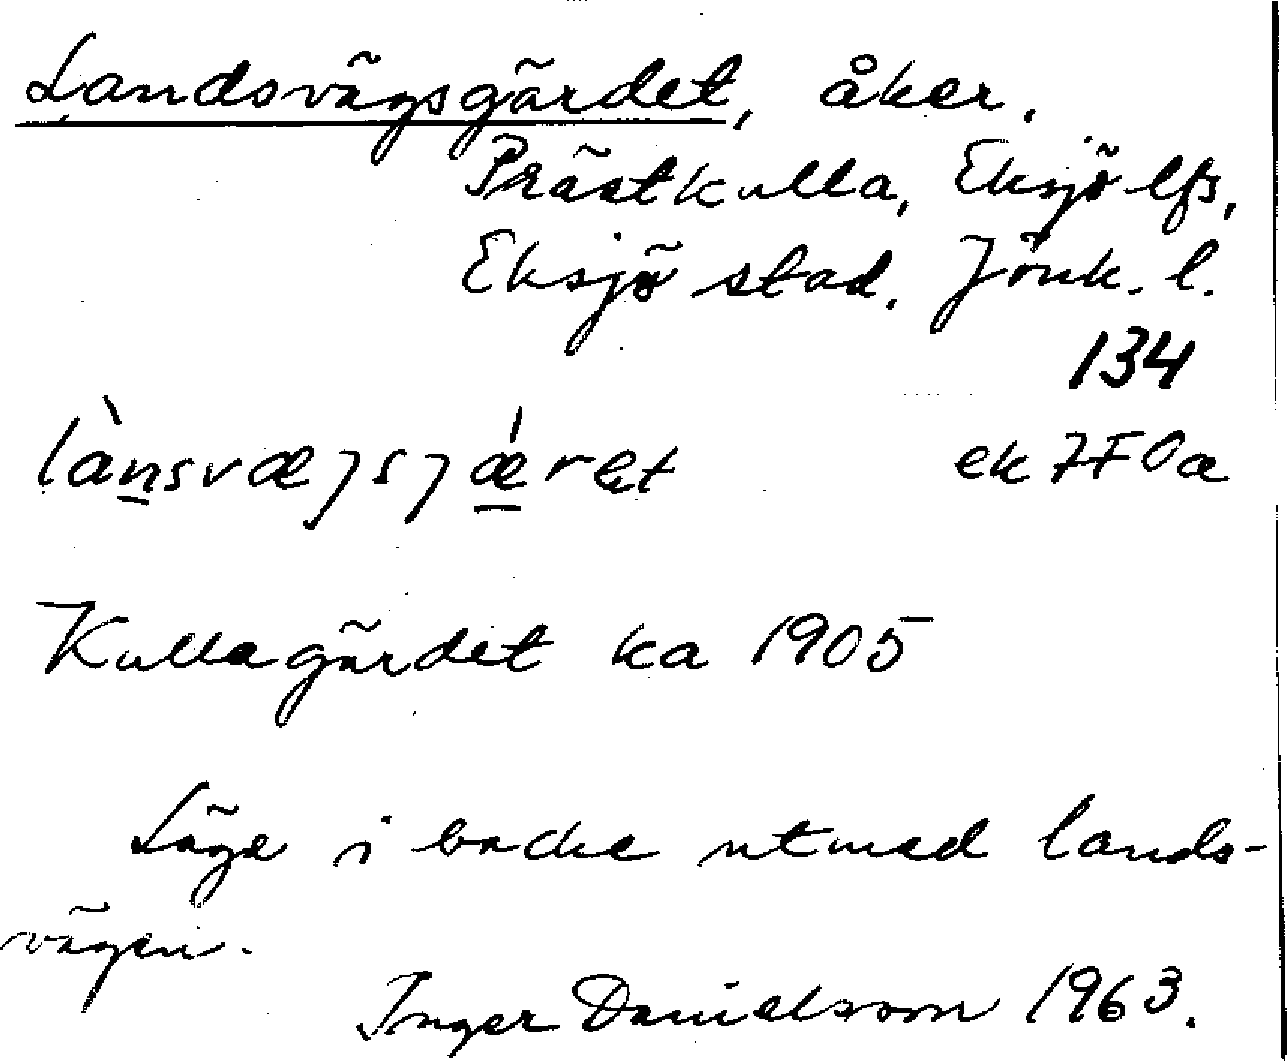 Landsvägsgärdet, åker.
Prästkulla, Eksjö lfs,
Eksjö stad. Jönk. l.
134
lànsvæjsjæ̀ret ek 7F0a
Kullagärdet ka 1905
Läge i backe utmed lands-
vägen.
Inger Danielsson 1963.